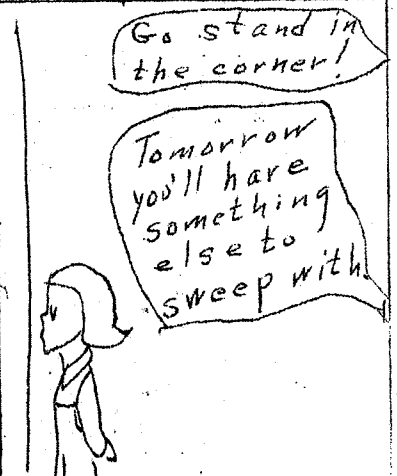 Go stand in
the corner!
Tomorrow
you'll have
something
else to
sweep with.